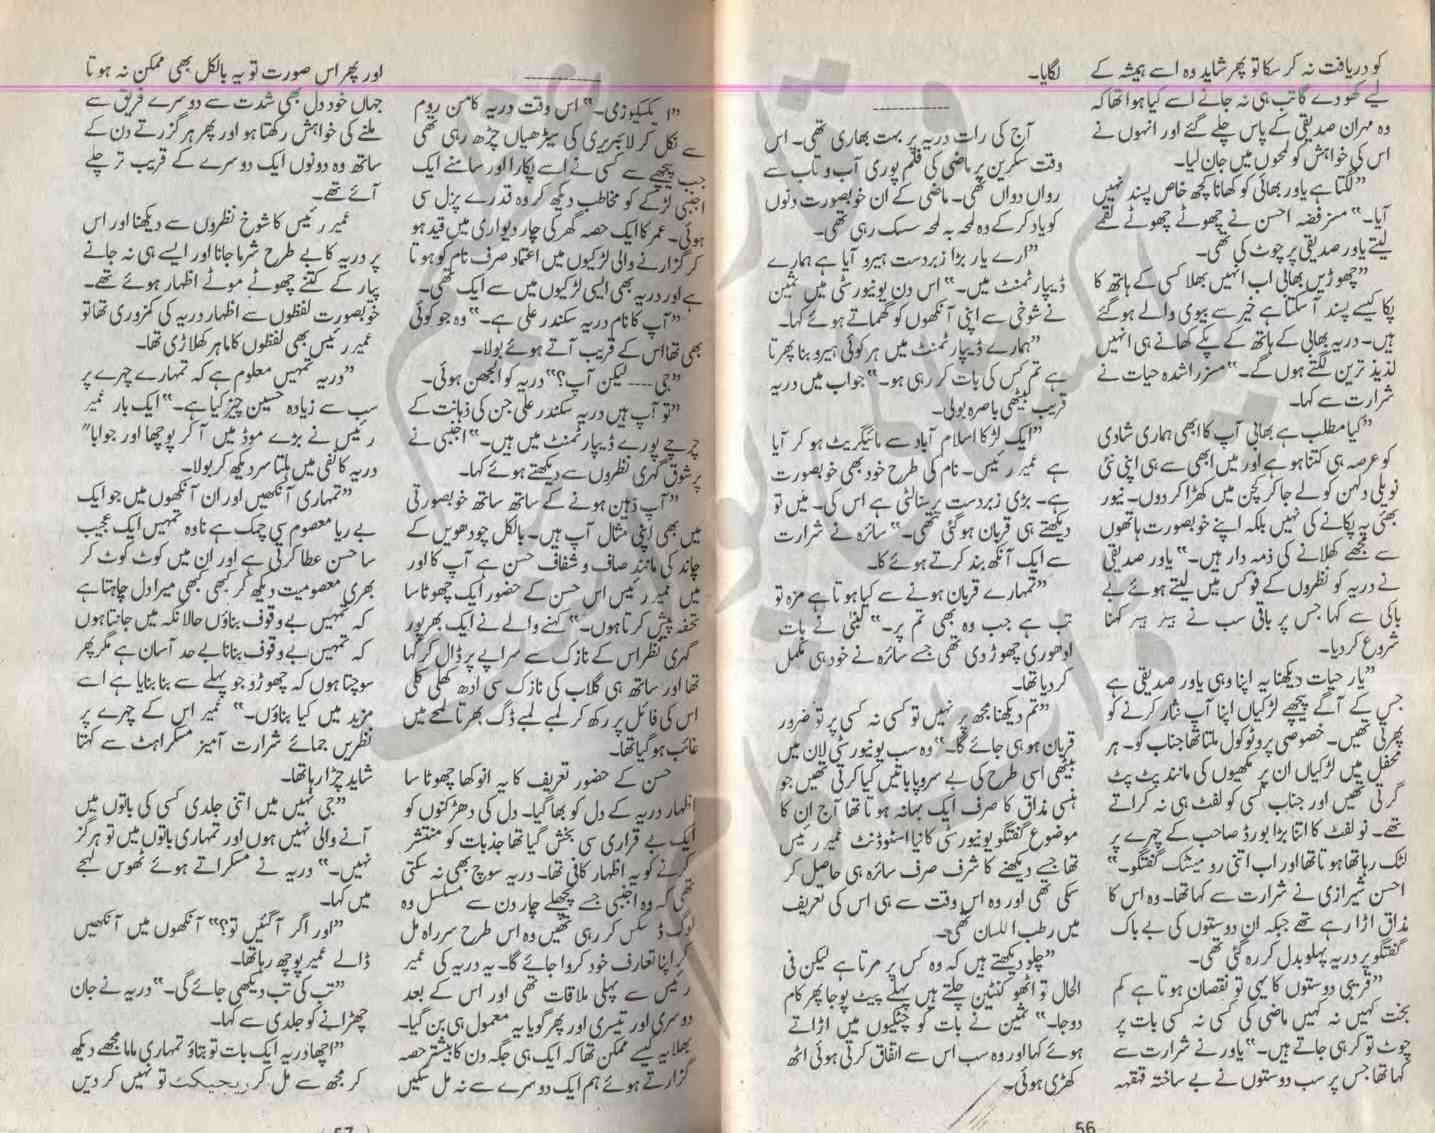 کو دریافت نہ کر سکا تو پھر شاید وہ اسے ہمیشہ کے
لیے کھو دے گا تب ہی نہ جانے اسے کیا ہوا تھا کہ
وہ مہران صدیقی کے پاس چلے گئے اور انہوں نے
اس کی خواہش کو لمحوں میں جان لیا۔
”لگتا ہے یاور بھائی کو کھانا کچھ خاص پسند نہیں
آیا۔“ مسز فضہ احسن نے چھوٹے چھوٹے لقمے
لیتے یاور صدیقی پر چوٹ کی تھی۔
”چھوڑیں بھائی اب انہیں بھلا کسی کے ہاتھ کا
پکا کیسے پسند آ سکتا ہے خیر سے بیوی والے ہو گئے
ہیں۔ دریہ بھابی کے ہاتھ کے پکے کھانے ہی انہیں
لذیذ ترین لگتے ہوں گے۔“ مسز راشدہ حیات نے
شرارت سے کہا۔
”کیا مطلب ہے بھابی آپ کا ابھی ہماری شادی
کو عرصہ ہی کتنا ہو ہے اور میں ابھی سے ہی اپنی نئی
نویلی دلہن کو لے جا کر کچن میں کھڑا کر دوں۔ نیور
بھئی یہ پکانے کی نہیں بلکہ اپنے خوبصورت ہاتھوں
سے مجھے کھلانے کی ذمہ دار ہیں۔“ یاور صدیقی
نے دریہ کو نظروں کے فوکس میں لیتے ہوئے بے
باکی سے کہا جس پر باقی سب نے ہیئر ہیئر کہنا
شروع کر دیا۔
”یار حیات دیکھنا یہ اپنا وہی یاور صدیقی ہے
جس کے آگے پیچھے لڑکیاں اپنا آپ نثار کرنے کو
پھرتی تھیں۔ خصوصی پروٹوکول ملتا تھا جناب کو۔ ہر
محفل میں لڑکیاں ان پر مکھیوں کی مانند پٹ پٹ
گرتی تھیں اور جناب کسی کو لفٹ ہی نہ کراتے
تھے۔ نو لفٹ کا اتنا بڑا بورڈ صاحب کے چہرے پر
لٹک رہا تھا ہوتا تھا اور اب اتنی رومینٹک گفتگو۔“
احسن شیرازی نے شرارت سے کہا تھا۔ وہ اس کا
مذاق اڑا رہے تھے جبکہ ان دوستوں کی بے باک
گفتگو پر دریہ پہلو بدل کر رہ گئی تھی۔
”قریبی دوستوں کا یہی تو نقصان ہوتا ہے کم
بخت کہیں نہ کہیں ماضی کی کسی نہ کسی بات پر
چوٹ تو کر ہی جاتے ہیں۔“ یاور نے شرارت سے
کہا تھا جس پر سب دوستوں نے بے ساختہ قہقہہ
لگایا۔
آج کی رات دریہ پر بہت بھاری تھی۔ اس
وقت سکرین پر ماضی کی فلم پوری آب و تاب سے
رواں دواں تھی۔ ماضی کے ان خوبصورت دنوں
کو یاد کر کے وہ لمحہ بہ لمحہ سسک رہی تھی۔
”ارے یار بڑا زبردست ہیرو آیا ہے ہمارے
ڈیپارٹمنٹ میں۔“ اس دن یونیورسٹی میں ثمین
نے شوخی سے اپنی آنکھوں کو گھماتے ہوئے کہا۔
”ہمارے ڈیپارٹمنٹ میں ہر کوئی ہیرو بنا پھرتا
ہے تم کس کی بات کر رہی ہو۔“ جواب میں دریہ
قریب بیٹھی باصرہ بولی۔
”ایک لڑکا اسلام آباد سے مائیگریٹ ہو کر آیا
ہے عمیر رئیس۔ نام کی طرح خود بھی خوبصورت
ہے۔ بڑی زبردست پرسنالٹی ہے اس کی۔ میں تو
دیکھتے ہی قربان ہو گئی تھی۔“ سائرہ نے شرارت
سے ایک آنکھ بند کرتے ہوئے کہا۔
”تمہارے قربان ہونے سے کیا ہوتا ہے مزہ تو
تب ہے جب وہ بھی تم پر۔“ لبنیٰ نے بات
ادھوری چھوڑ دی تھی جسے سائرہ نے خود ہی مکمل
کر دیا تھا۔
”تم دیکھنا مجھ پر نہیں تو کسی نہ کسی پر تو ضرور
قربان ہو ہی جائے گا۔“ وہ سب یونیورسٹی لان میں
بیٹھی اسی طرح کی بے سروپا باتیں کیا کرتی تھیں جو
ہنسی مذاق کا صرف ایک بہانہ ہوتا تھا آج ان کا
موضوع گفتگو یونیورسٹی کا نیا اسٹوڈنٹ عمیر رئیس
تھا جسے دیکھنے کا شرف صرف سائرہ ہی حاصل کر
سکی تھی اور وہ اس وقت سے ہی اس کی تعریف
میں رطب اللسان تھی۔
”چلو دیکھتے ہیں کہ وہ کس پر مرتا ہے لیکن فی
الحال تو اٹھو کنٹین چلتے ہیں پہلے پیٹ پوجا پھر کام
دوجا۔“ ثمین نے بات کو چٹکیوں میں اڑاتے
ہوئے کہا اور وہ سب اس سے اتفاق کرتی ہوئی اٹھ
کھڑی ہوئی۔
56
”ایکسکیوزمی۔“ اس وقت دریہ کامن روم
سے نکل کر لائبریری کی سیڑھیاں چڑھ رہی تھی
جب پیچھے سے کسی نے اسے پکارا اور سامنے ایک
اجنبی لڑکے کو مخاطب دیکھ کر وہ قدرے پزل سی
ہوئی۔ عمر کا ایک حصہ گھر کی چار دیواری میں قید ہو
کر گزارنے والی لڑکیوں میں اعتماد صرف نام کو ہوتا
ہے اور دریہ بھی ایسی لڑکیوں میں سے ایک تھی۔
”آپ کا نام دریہ سکندر علی ہے۔“ وہ جو کوئی
بھی تھا اس کے قریب آتے ہوئے بولا۔
”جی۔۔۔۔ لیکن آپ؟“ دریہ کو الجھن ہوئی۔
”تو آپ ہیں دریہ سکندر علی جن کی ذہانت کے
چرچے پورے ڈیپارٹمنٹ میں ہیں۔“ اجنبی نے
پر شوق گہری نظروں سے دیکھتے ہوئے کہا۔
”آپ ذہین ہونے کے ساتھ ساتھ خوبصورتی
میں بھی اپنی مثال آپ ہیں۔ بالکل چودھویں کے
چاند کی مانند صاف و شفاف حسن ہے آپ کا اور
میں عمیر رئیس اس حسن کے حضور ایک چھوٹا سا
تحفہ پیش کرتا ہوں۔“ کہنے والے نے ایک بھرپور
گہری نظر اس کے نازک سے سراپے پر ڈال کر کہا
تھا اور ساتھ ہی گلاب کی نازک سی ادھ کھلی کلی
اس کی فائل پر رکھ کر لمبے لمبے ڈگ بھرتا لمحے میں
غائب ہو گیا تھا۔
حسن کے حضور تعریف کا یہ انوکھا چھوٹا سا
اظہار دریہ کے دل کو بھا گیا۔ دل کی دھڑکنوں کو
ایک بے قراری سی بخش گیا تھا جذبات کو منتشر
کرنے کو یہ اظہار کافی تھا۔ دریہ سوچ بھی نہ سکتی
تھی کہ وہ اجنبی جسے پچھلے چار دن سے مسلسل وہ
لوگ ڈسکس کر رہی تھیں وہ اس طرح سر راہ مل
کر اپنا تعارف خود کروا جائے گا۔ یہ دریہ کی عمیر
رئیس سے پہلی ملاقات تھی اور اس کے بعد
دوسری اور تیسری اور پھر گویا یہ معمول ہی بن گیا۔
بھلا یہ کیسے ممکن تھا کہ ایک ہی جگہ دن کا بیشتر حصہ
گزارتے ہوئے ہم ایک دوسرے سے نہ مل سکیں
اور پھر اس صورت تو یہ بالکل بھی ممکن نہ ہوتا
جہاں خود دل بھی شدت سے دوسرے فریق سے
ملنے کی خواہش رکھتا ہو اور پھر ہر گزرتے دن کے
ساتھ وہ دونوں ایک دوسرے کے قریب تر چلے
آئے تھے۔
عمیر رئیس کا شوخ نظروں سے دیکھنا اور اس
پر دریہ کا بے طرح شرما جانا اور ایسے ہی نہ جانے
پیار کے کتنے چھوٹے موٹے اظہار ہوئے تھے۔
خوبصورت لفظوں سے اظہار دریہ کی کمزوری تھا تو
عمیر رئیس بھی لفظوں کا ماہر کھلاڑی تھا۔
”دریہ تمہیں معلوم ہے کہ تمہارے چہرے پر
سب سے زیادہ حسین چیز کیا ہے۔“ ایک بار عمیر
رئیس نے بڑے موڈ میں آ کر پوچھا اور جواباً
دریہ کا نفی میں ہلتا سر دیکھ کر بولا۔
”تمہاری آنکھیں اور ان آنکھوں میں جو ایک
بے ریا معصوم سی چمک ہے نا وہ تمہیں ایک عجیب
سا حسن عطا کرتی ہے اور ان میں کوٹ کوٹ کر
بھری معصومیت دیکھ کر کبھی کبھی میرا دل چاہتا ہے
کہ تمہیں بے وقوف بناؤں حالانکہ میں جانتا ہوں
کہ تمہیں بے وقوف بنانا بے حد آسان ہے مگر پھر
سوچتا ہوں کہ چھوڑو جو پہلے سے بنا بنایا ہے اسے
مزید میں کیا بناؤں۔“ عمیر اس کے چہرے پر
نظریں جمائے شرارت آمیز مسکراہٹ سے کہتا
شاید چڑا رہا تھا۔
”جی نہیں میں اتنی جلدی کسی کی باتوں میں
آنے والی نہیں ہوں اور تمہاری باتوں میں تو ہرگز
نہیں۔“ دریہ نے مسکراتے ہوئے ٹھوس لہجے
میں کہا۔
”اور اگر آ گئیں تو؟“ آنکھوں میں آنکھیں
ڈالے عمیر پوچھ رہا تھا۔
”تب کی تب دیکھی جائے گی۔“ دریہ نے جان
چھڑانے کو جلدی سے کہا۔
”اچھا دریہ ایک بات تو بتاؤ تمہاری ماما مجھے دیکھ
کر مجھ سے مل کر ریجیکٹ تو نہیں کر دیں
57